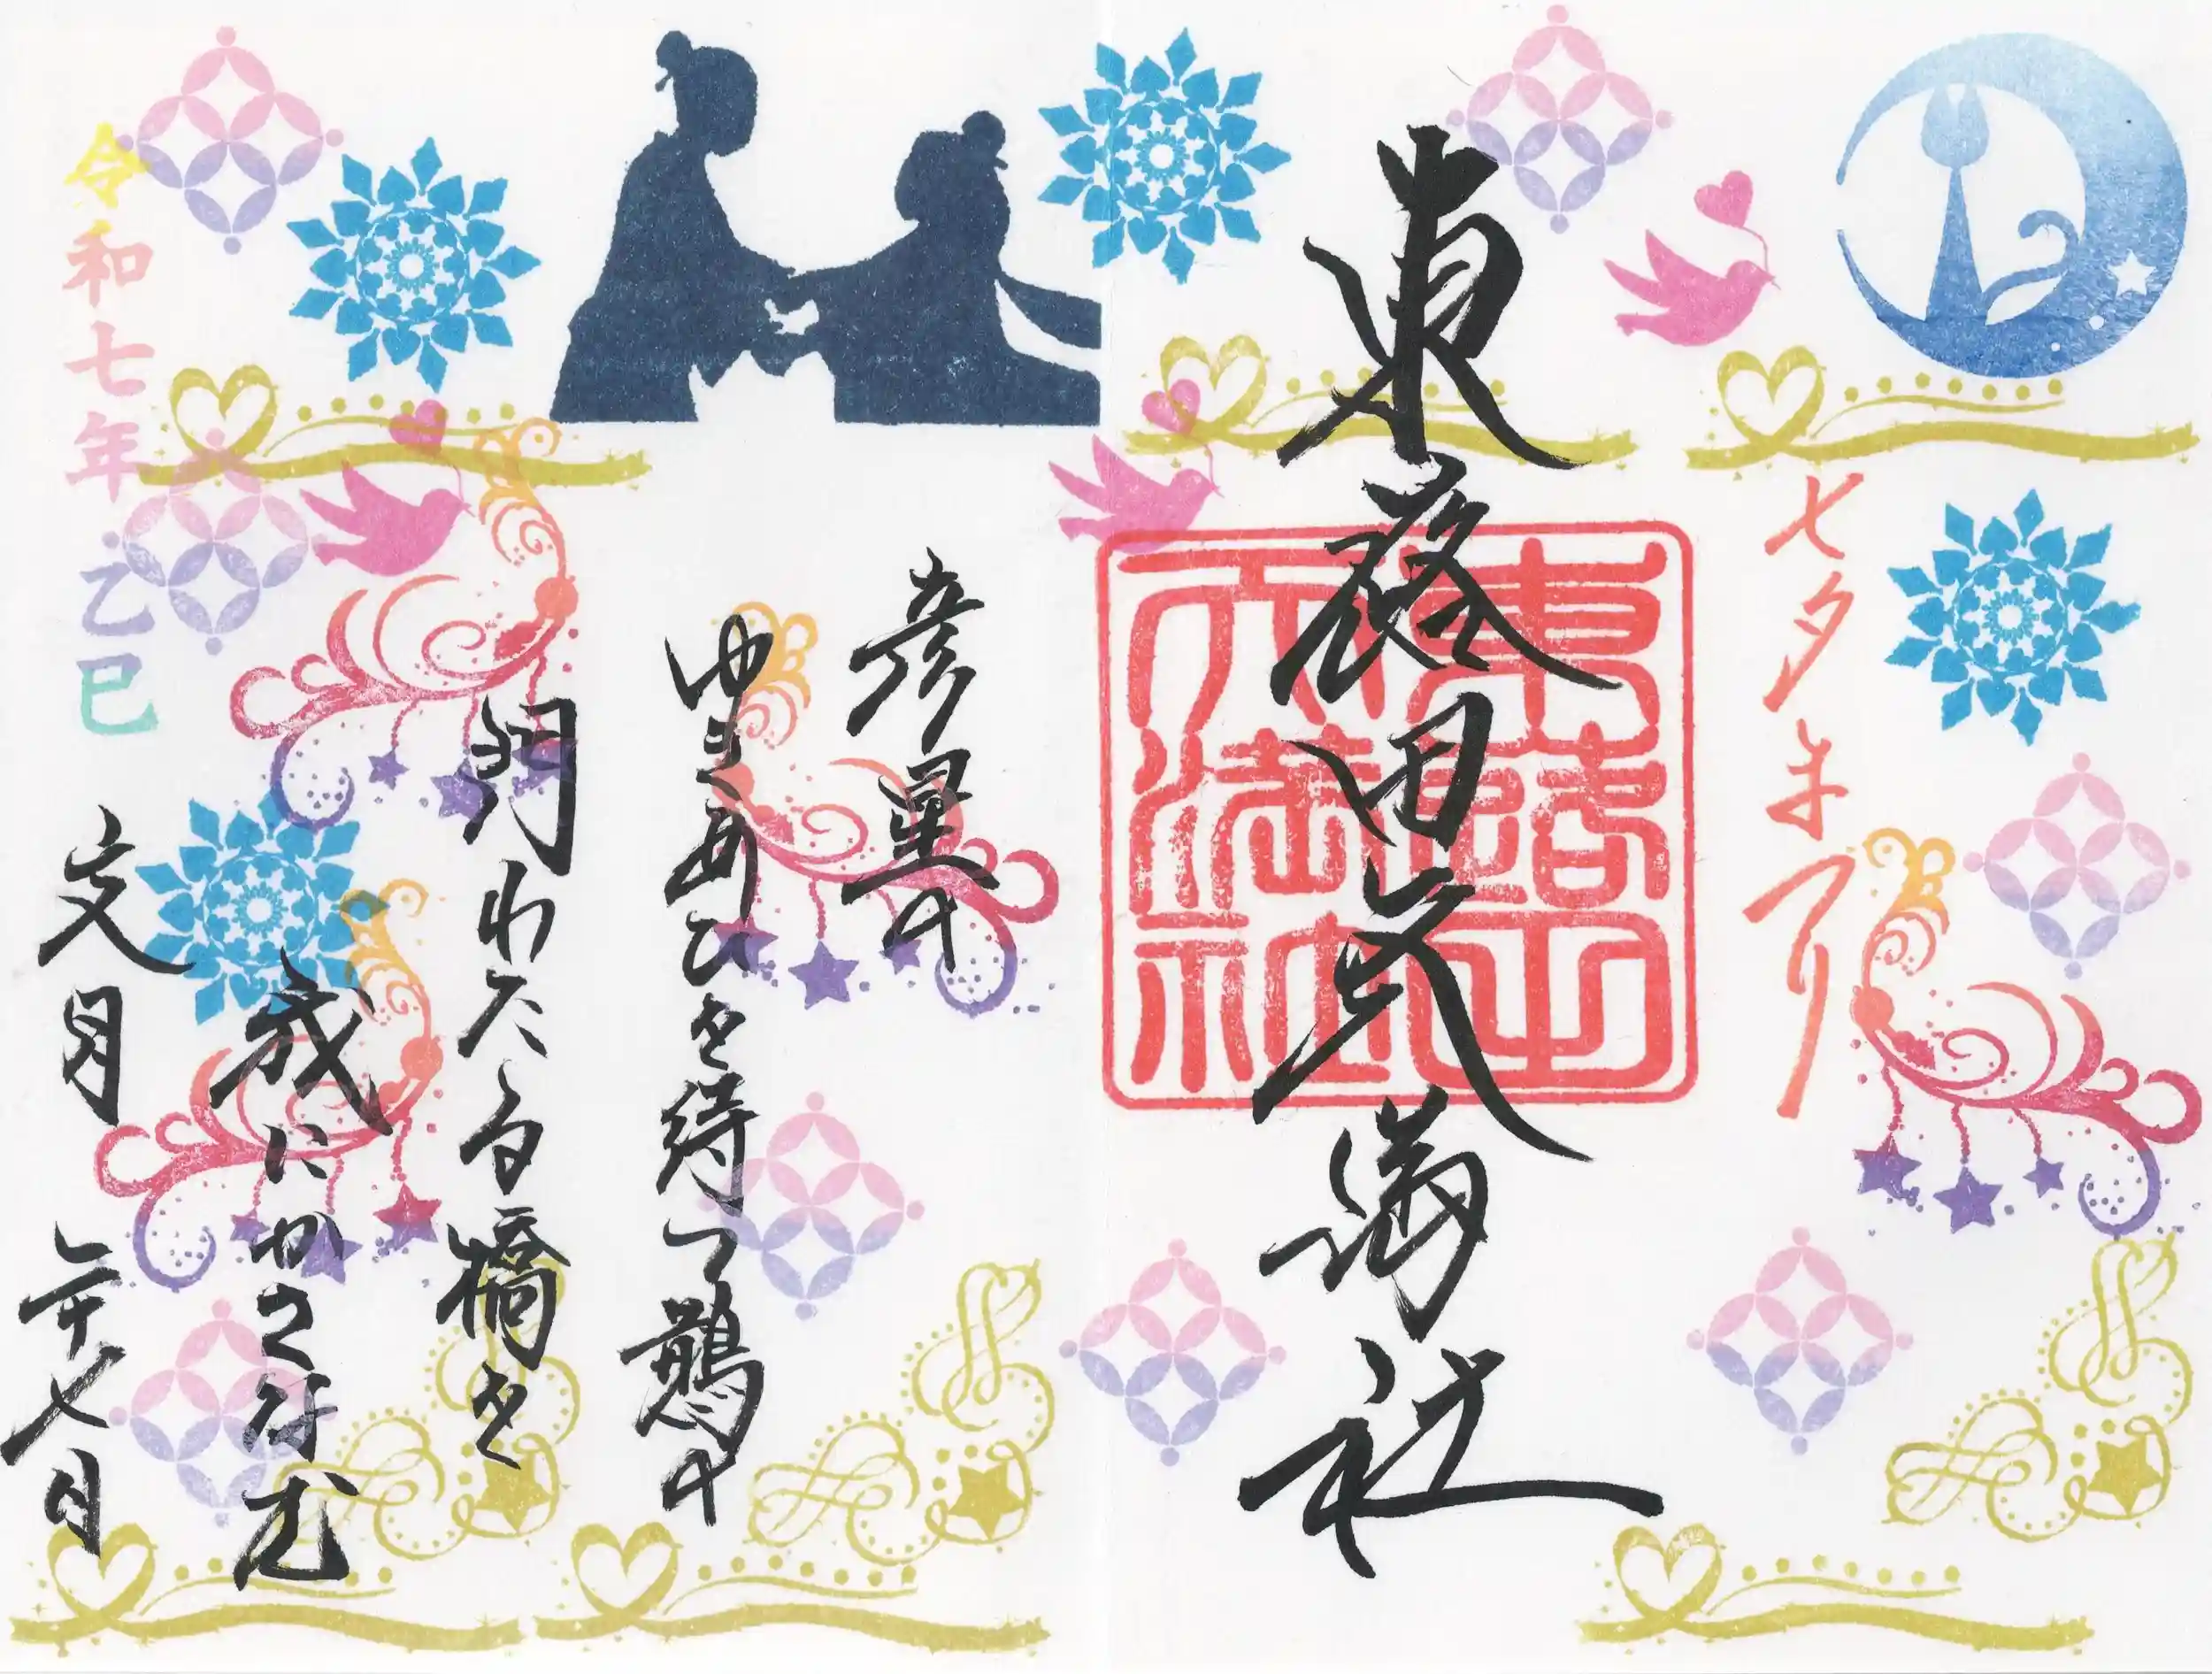 七夕まつり
東蕗田天満社
彦星の
ゆきあひを待つ鵲の
門わたる橋を
我にかさなむ
令和七年乙巳
文月 二十七日